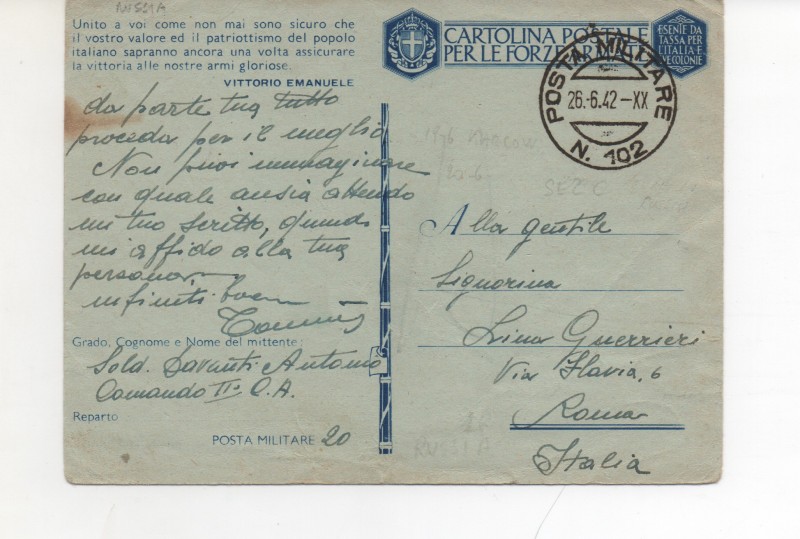 Unito a voi come non mai sono sicuro che
il vostro valore ed il patriottismo del popolo
italiano sapranno ancora una volta assicurare
la vittoria alle nostre armi gloriose.
VITTORIO EMANUELE
da parte tua tutto
proceda per il meglio.
Non puoi immaginare
con quale ansia attendo
un tuo scritto, quindi
mi affido alla tua
persona.
infiniti baci
Grado, Cognome e Nome del mittente:
Sold. Savanti Antonio
Comando II° C.A.
Reparto
POSTA MILITARE 20
CARTOLINA POSTALE
PER LE FORZE ARMATE
ESENTE DA
TASSA PER
L'ITALIA E
LE COLONIE
POSTA MILITARE
26.-6.42-XX
N. 102
Alla gentile
Signorina
Lina Guerrieri
Via Flavia, 6
Roma
Italia
RUSSIA